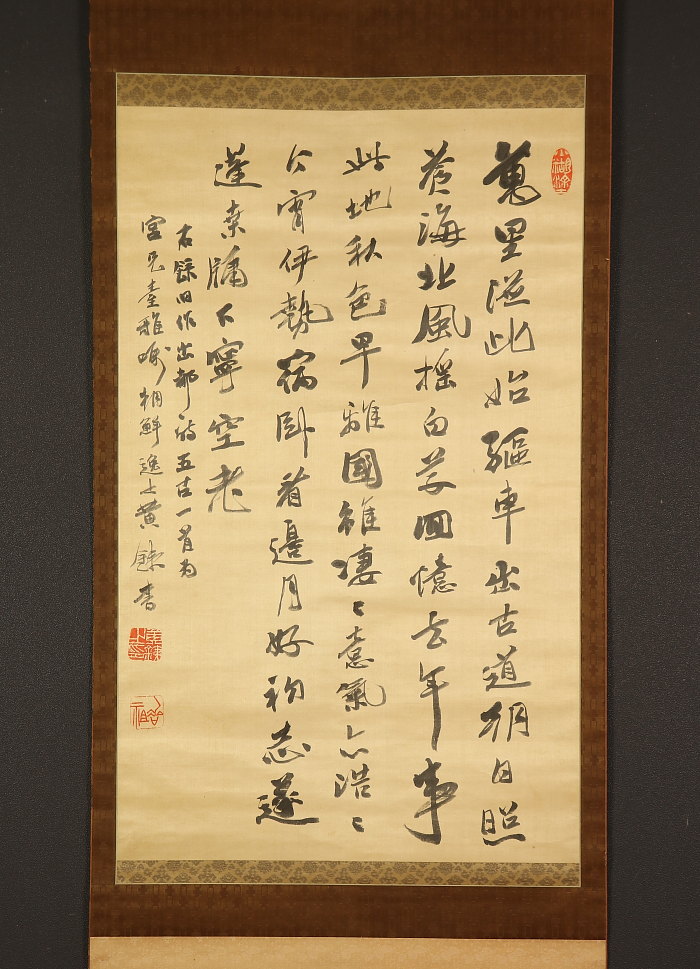 萬里從此始驅車出古道朝日照
蒼海北風搖白草回憶去年事
此地秋色早離國雖凄〻意氣亦浩〻
今宵伊勢宿臥看邊月好初志遂
蓬桑牖下寧空老
右錄旧作出都詩五古一首為
宮兄臺雅囑 朝鮮逸士黃鐵書